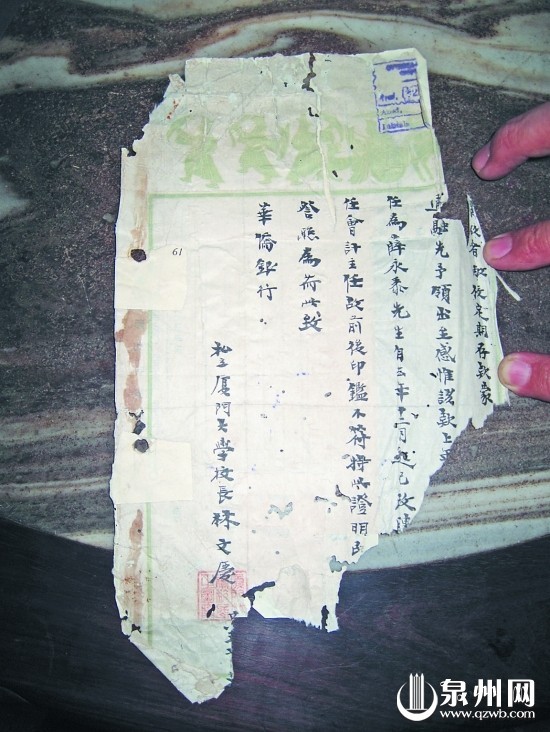 敝校有款役定期存款蒙
通融先予領出至感惟該款上
任為薛永黍先生自三年十二月起已改陳
任會計主任致前後印鑑不符特此證明函
答照為荷此致
華僑銀行
私立厦門大學校長林文慶
61
泉州网
www.qzwb.com